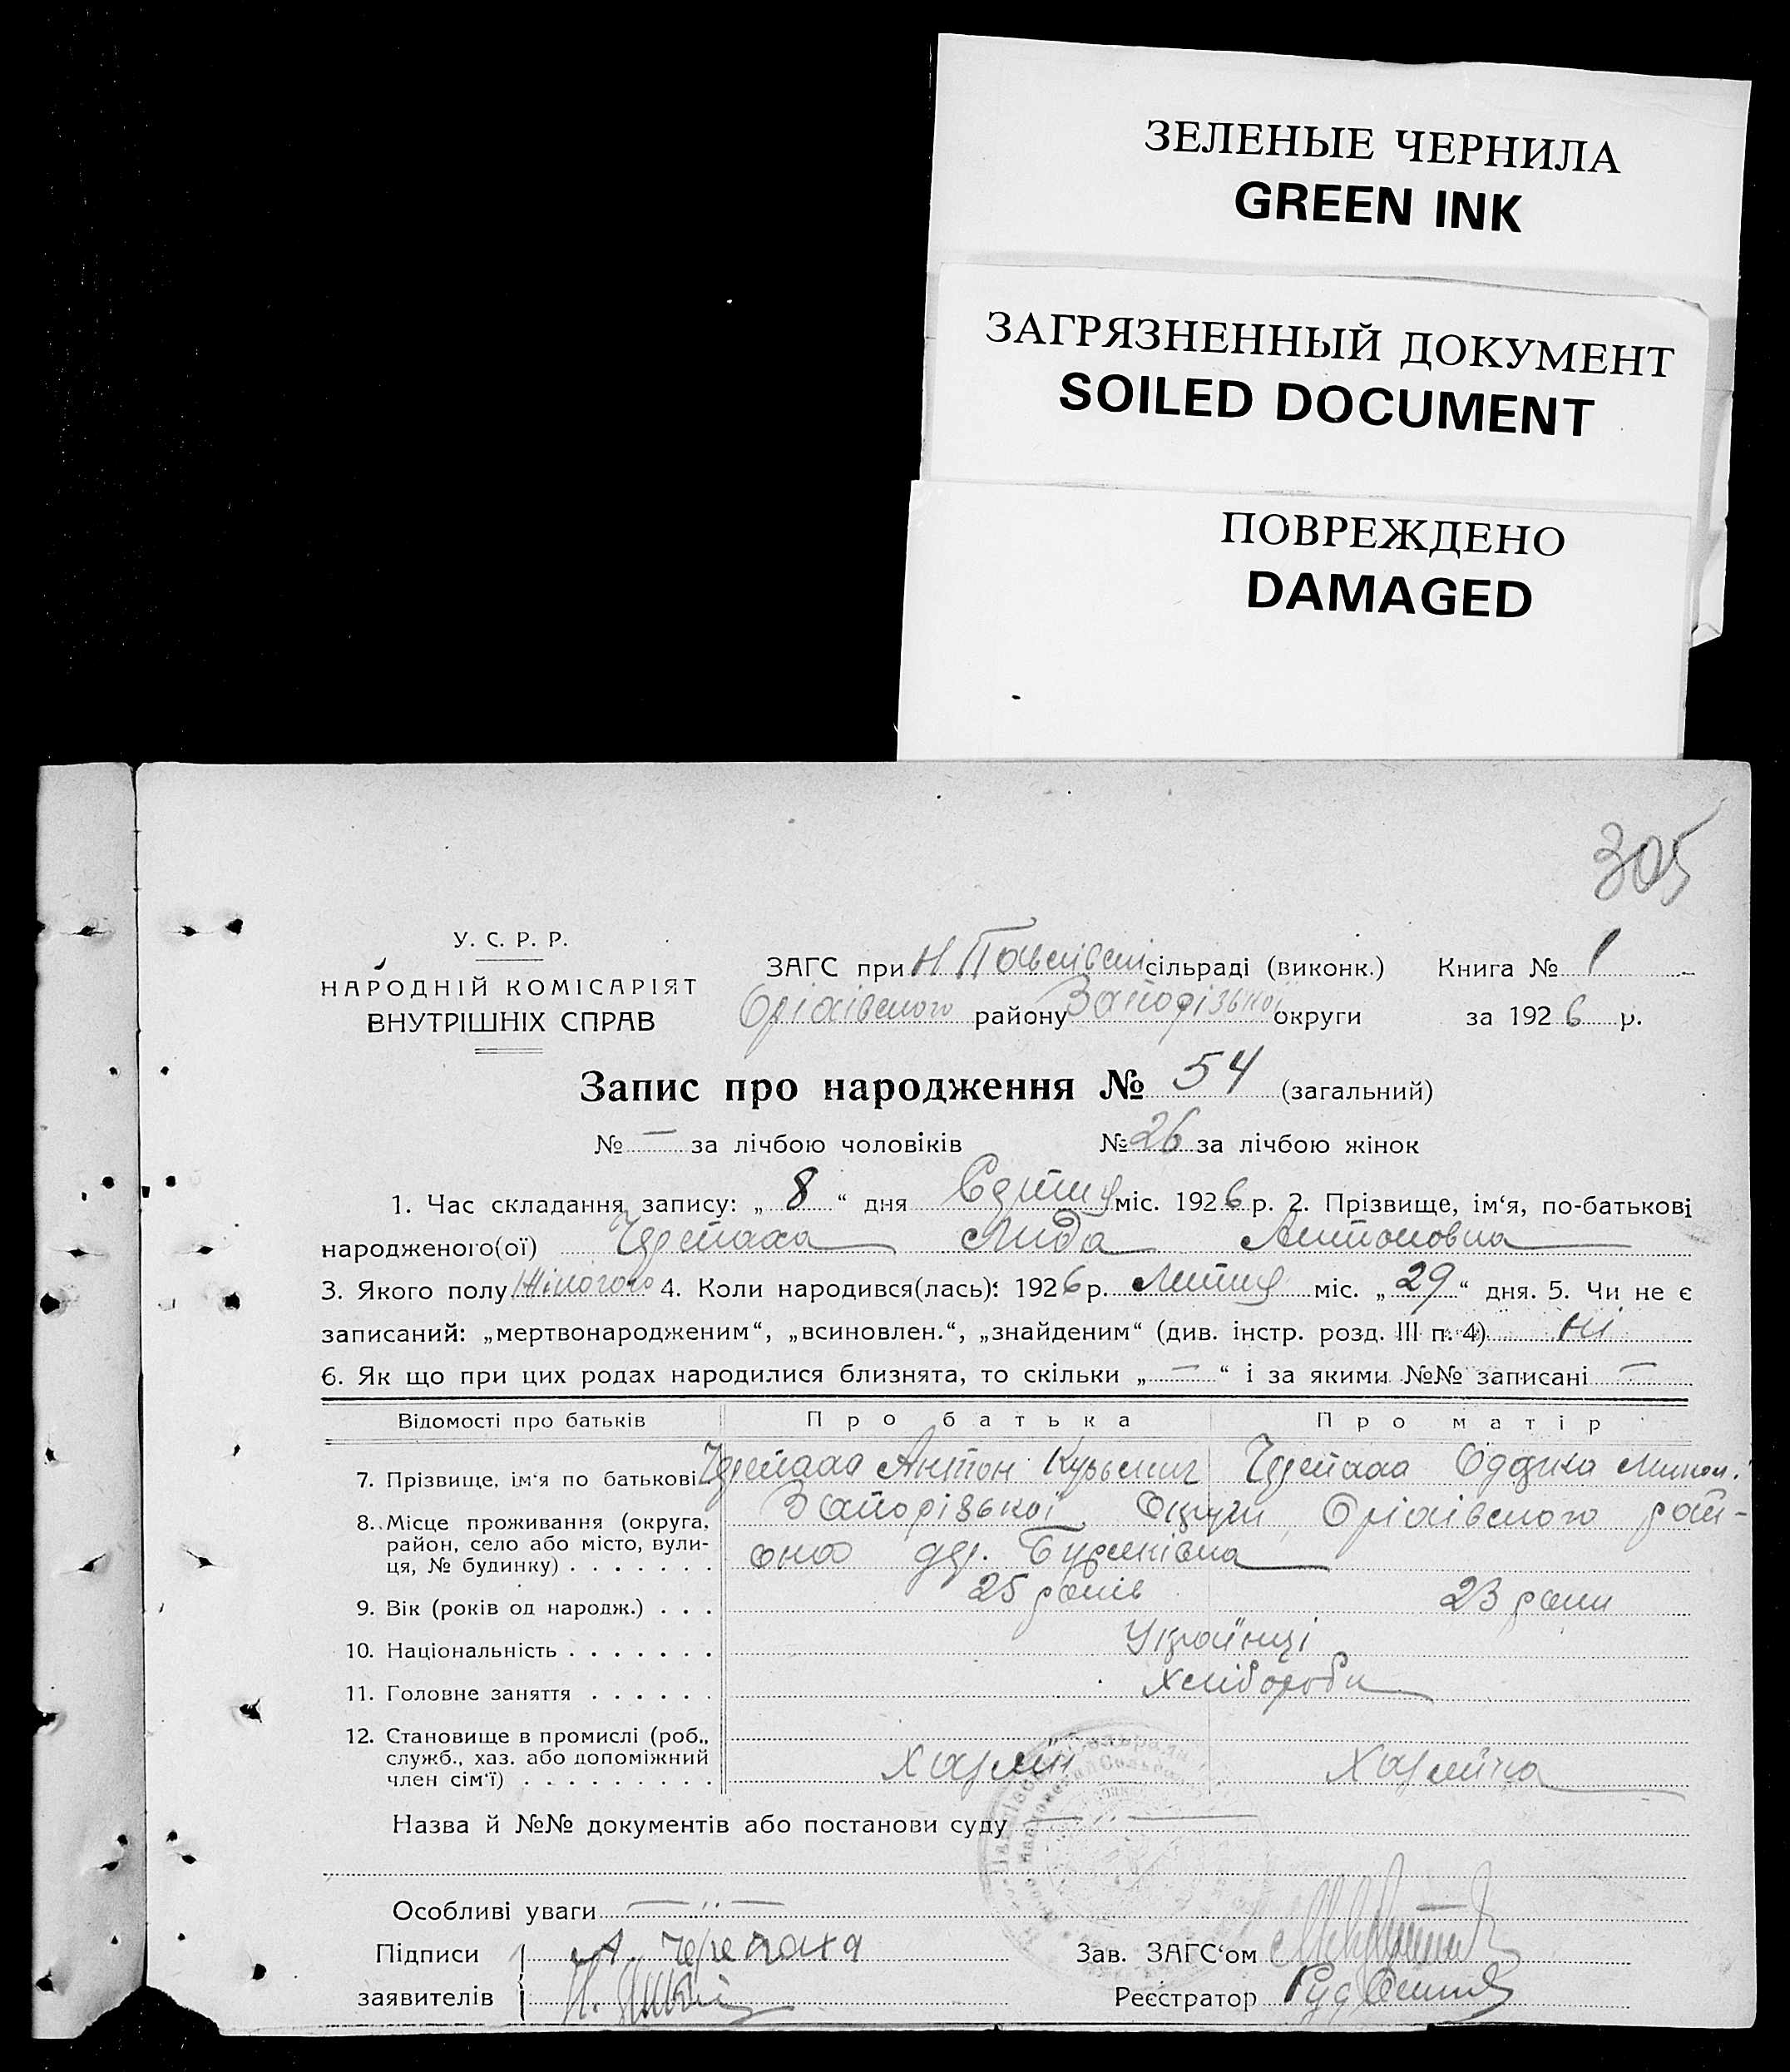 ЗЕЛЕНЫЕ ЧЕРНИЛА
GREEN INK
ЗАГРЯЗНЕННЫЙ ДОКУМЕНТ
SOILED DOCUMENT
ПОВРЕЖДЕНО
DAMAGED
305
У. С. Р. Р.
НАРОДНІЙ КОМІСАРІЯТ
ВНУТРІШНІХ СПРАВ
ЗАГС при Н Павлівській сільраді (виконк.) Книга № 1
Оріхівського району Запорізької округи за 1926 р.
Запис про народження № 54 (загальний)
№ — за лічбою чоловіків № 26 за лічбою жінок
1. Час складання запису: „ 8 “ дня Серпня міс. 1926 р. 2. Прізвище, ім‘я, по-батькові
народженого(ої) Черепаха Лида Антоновна
3. Якого полу Жіночого 4. Коли народився(лась): 1926 р. Липня міс. „ 29 “ дня. 5. Чи не є
записаний: „мертвонародженим“, „всиновлен.“, „знайденим“ (див. інстр. розд. III п. 4) ні
6. Як що при цих родах народилися близнята, то скільки „ — “ і за якими №№ записані —
Відомості про батьків Про батька Про матір
7. Прізвище, ім‘я по батькові Черепаха Антон Черепаха
8. Місце проживання (округа, район, село або місто, вулиця, № будинку) Запорізької Округи, Оріхівського рай-
она
9. Вік (років од народж.) 25 років 23 роки
10. Національність Українці
11. Головне заняття Хлібороби
12. Становище в промислі (роб., служб., хаз. або допоміжний член сім‘ї) Хазяїн Хазяйка
Назва й №№ документів або постанови суду — „ —
Особливі уваги — „ —
Підписи А. Черепаха Зав. ЗАГС‘ом
заявителів Реєстратор